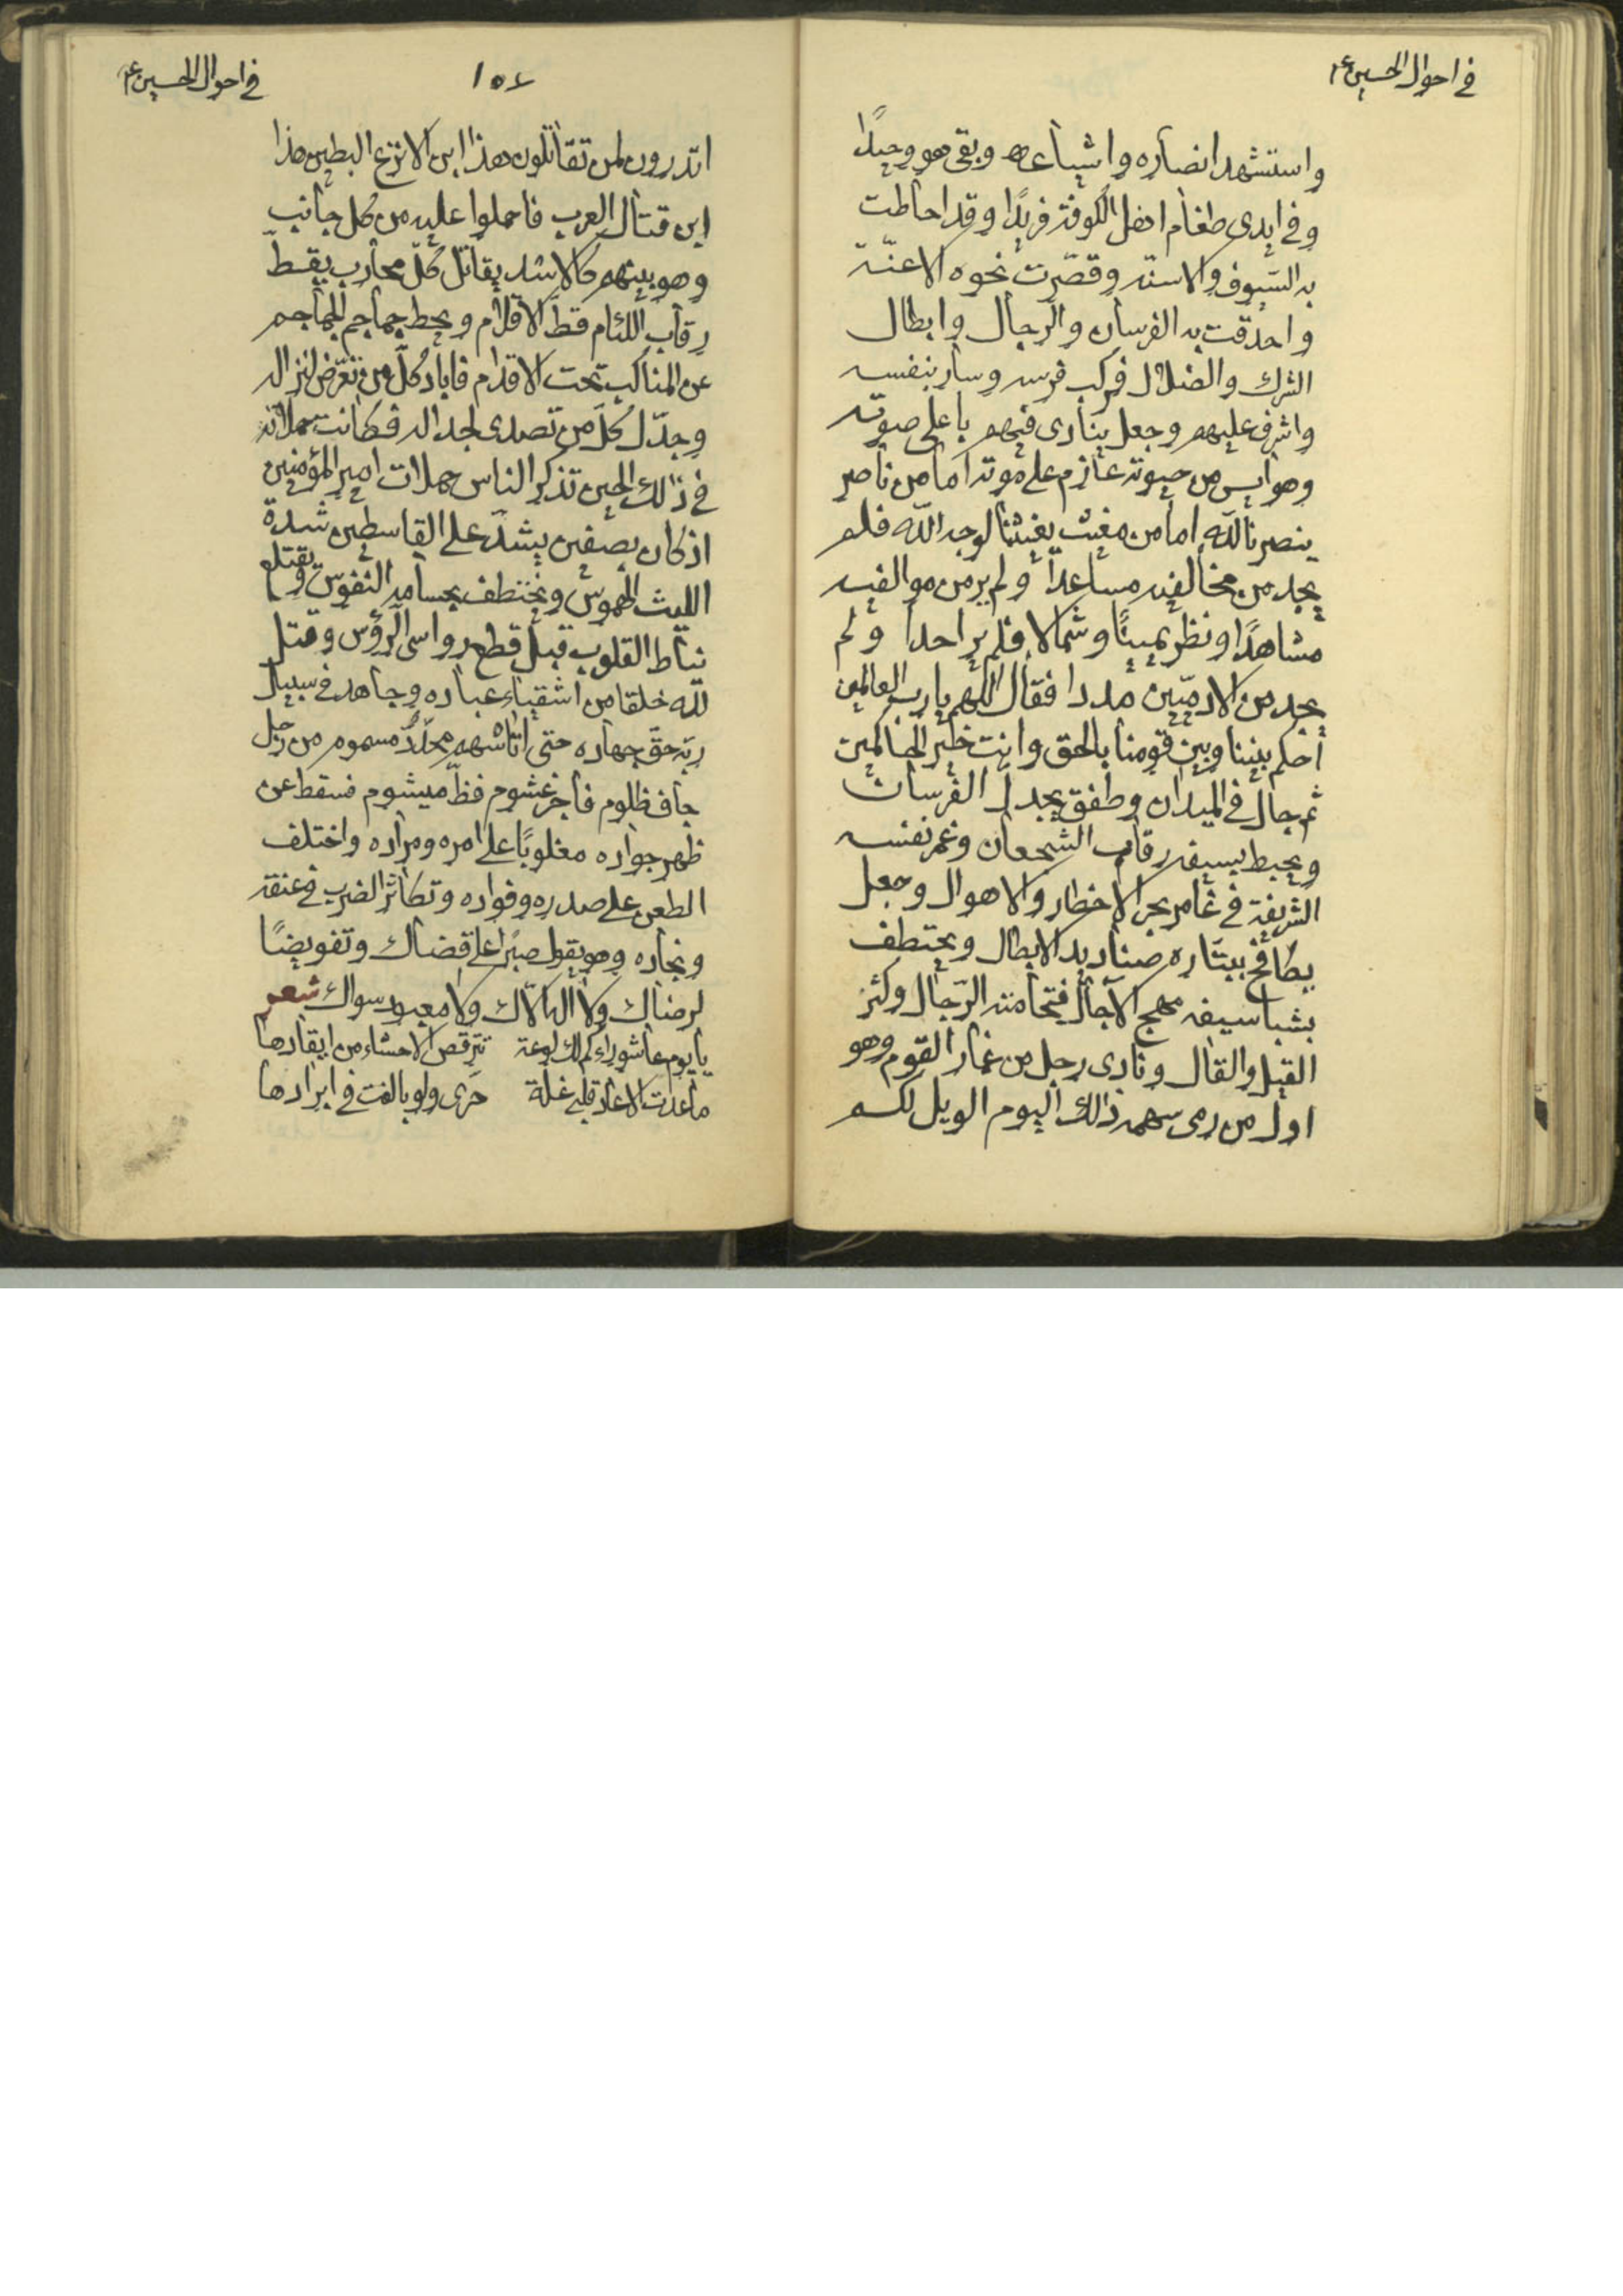 في احوال الحسين ع
واستشهد انصاره واشياعه وبقى هو وحيدًا
وفي ايدى طغام اهل الكوفة فريدًا وقد احاطت
به السّيوف والاسنّة وقصّرت نحوه الاعنّة
واحدقت به الفرسان والرجال وابطال
الشرك والضلال فركب فرسه وسار بنفسه
واشرف عليهم وجعل ينادى فيهم باعلى صوته
وهو ايس من حيوته عازم على موته اما من ناصر
ينصرنا لله اما من مغيث يغيثنا لوجه الله فلم
يجد من مخالفيه مساعدًا ولم ير من موالفيه
مشاهدًا ونظر يمينًا وشمالا فلم ير احدا ولم
يجد من الادميّين مددا فقال اللهم يا رب العالمين
احكم بيننا وبين قومنا بالحق وانت خير الحاكمين
ثم جال في الميدان وطفق يجدل الفرسان
ويحيط بسيفه رقاب الشجعان وغمر نفسه
الشريفة في غامر بحر الاخطار والاهوال وجعل
يطافح ببتّاره صناديد الابطال ويختطف
بشبا سيفه مهج الآجال فتحامته الرّجال وكثر
القيل والقال ونادى رجل من غمار القوم وهو
اول من رمى سهمه ذلك اليوم الويل لكم
١٥٤
في احوال الحسين ع
اتدرون لمن تقاتلون هذا ابن الانزع البطين هذا
ابن قتال العرب فاحملوا عليه من كل جانب
وهو بينهم كالاسد يقاتل كلّ محارب يقطّ
رقاب اللئام قطّ الاقلام ويحط جماجم الجماجم
عن المناكب تحت الاقدام فاباد كلّ من تعرّض لنزاله
وجدّل كلّ من تصدى لجداله فكانت حملاته
في ذلك الحين تذكر الناس حملات امير المؤمنين
اذ كان بصفين يشدّ على القاسطين شدة
الليث الهموس ويختطف بحسامه النفوس ويقتلع
نياط القلوب قبل قطع رواسى الرؤس وقتل
لله خلقا من اشقياء عباده وجاهد في سبيل
ربّه حقّ جهاده حتى اتاه سهم محدّد مسموم من رجل
جاف ظلوم فاجر غشوم فظّ ميشوم فسقط عن
ظهر جواده مغلوبًا على امره ومراده واختلف
الطعن على صدره وفواده وتكاثر الضرب في عنقه
ونجاده وهو يقول صبرًا على قضاك وتفويضًا
لرضاك ولا اله الّاك ولا معبود سواك شعر
يا يوم عاشوراء كم لك لوعة تترقص الاحشاء من ايقادها
ما عدت الا عاد قلبي غلة حرى ولو بالغت في ابرادها